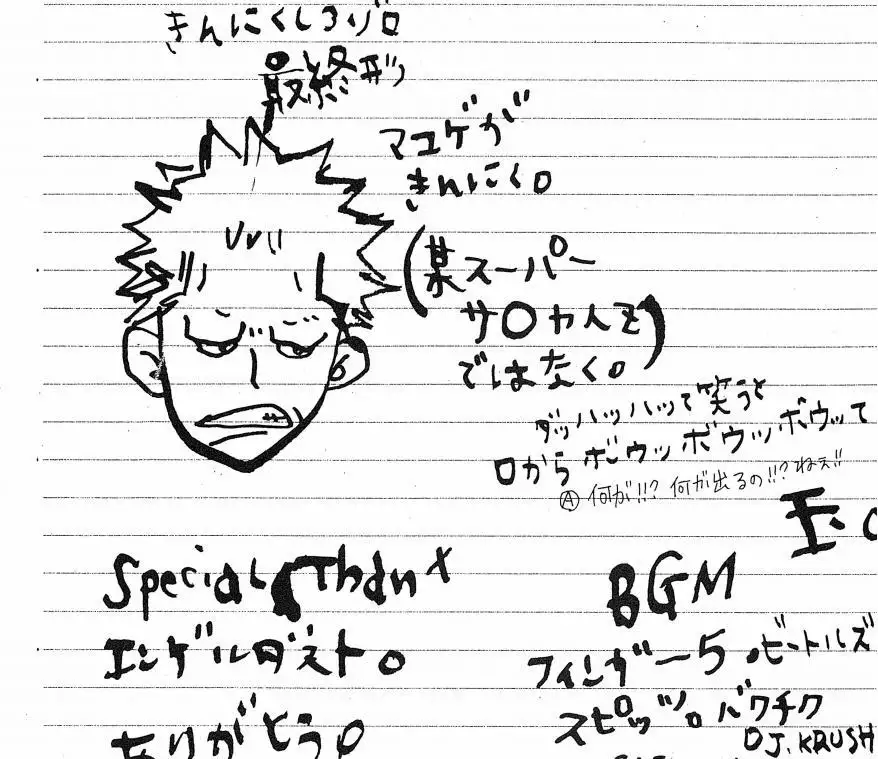 きんにくしろゾロ
最終ボツ
マユゲが
きんにく。
(某スーパー
サ〇ヤ人Z)
ではなく。
ダッハッハッて笑うと
口からボウッボウッボウッて
Ⓐ 何が!!? 何が出るの!!? ねぇ!!
Special Thanx
エンゲルダスト。
ありがとう。
BGM
フィンガー5。ビートルズ
スピッツ。バクチク
DJ. KRUSH